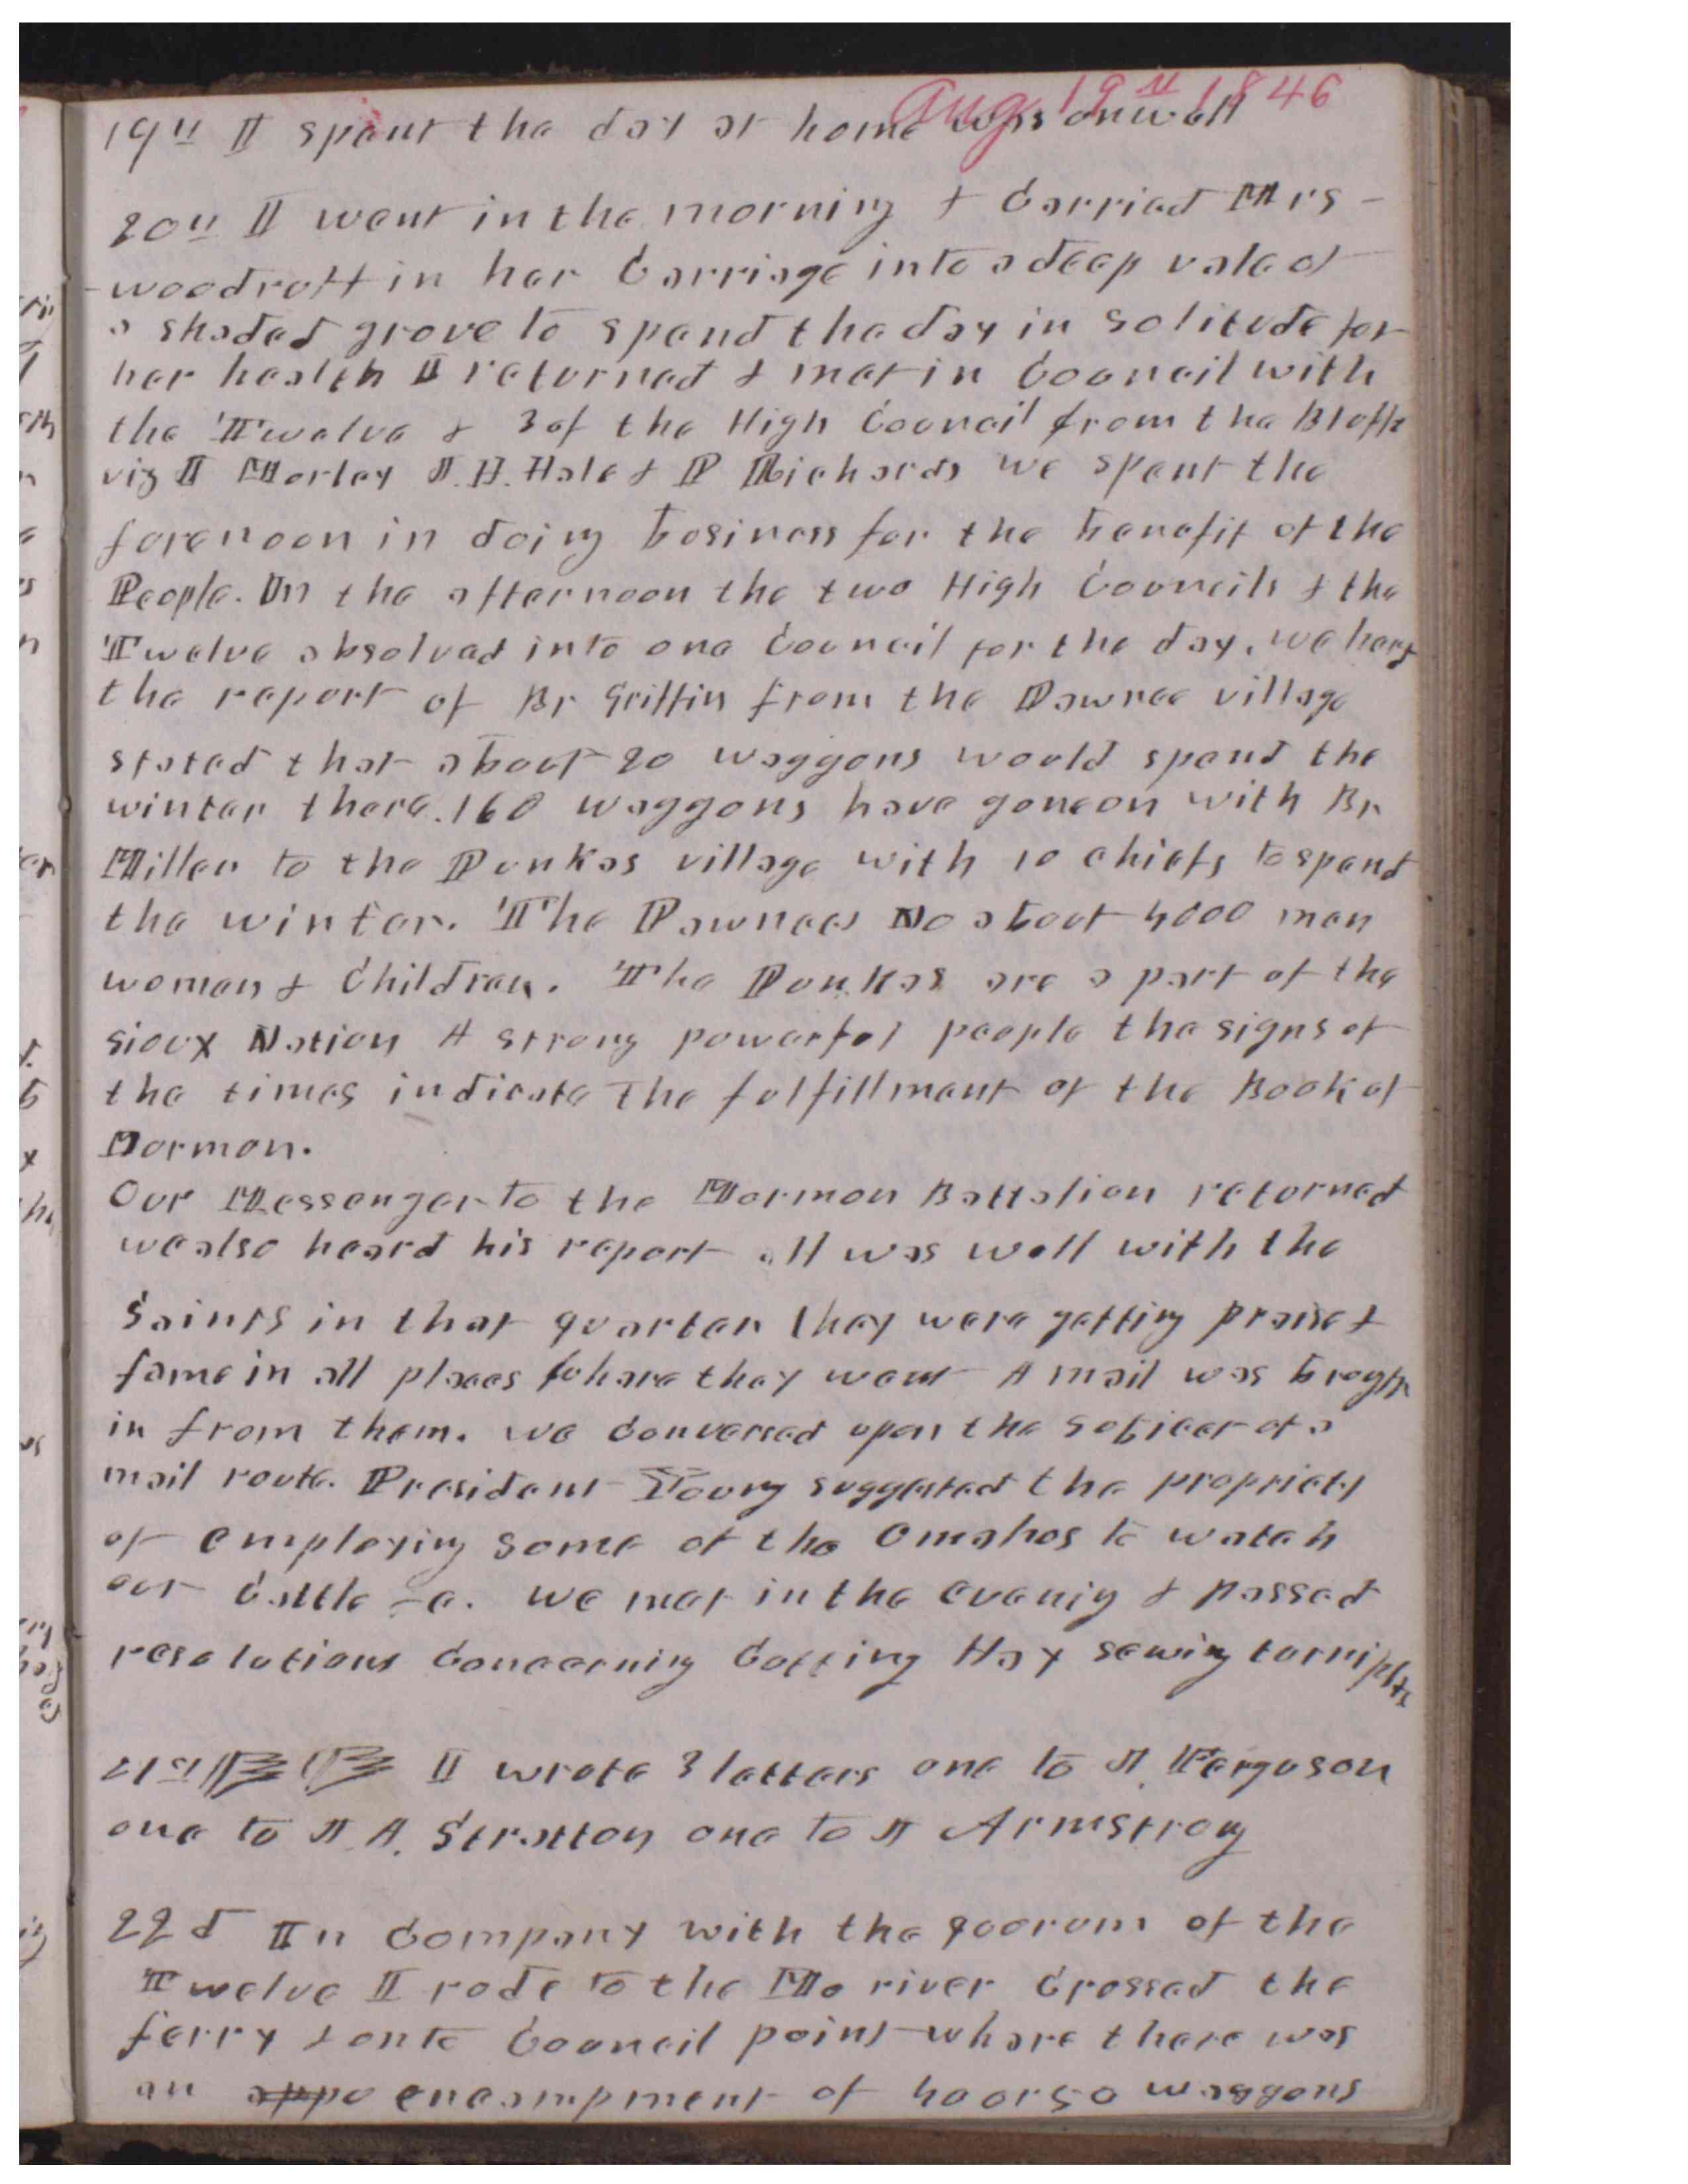 Aug 19th 1846
19th I spent the day at home was unwell
20th I went in the morning & Carried Mrs
woodruff in her Carriage into a deep vale of
a shaded grove to spend the day in solitude for
her health I returned & met in Council with
the Twelve & 3 of the High Council from the Bluffs
viz I Morley J. H. Hale & P Richards we spent the
forenoon in doing business for the benefit of the
People. In the afternoon the two High Councils & the
Twelve absolved into one Council for the day. we herd
the report of Br Griffin from the Pawnee village
stated that about 20 waggons would spend the
winter there. 160 waggons have gone on with Br
Miller to the Punkas village with 10 chiefs to spend
the winter. The Pawnees No about 4000 men
women & Children. The Punkas are a part of the
sioux Nation A strong powerful people the signs of
the times indicate The fulfillment of the Book of
Mormon.
Our Messenger to the Mormon Battalion returned
we also heard his report all was well with the
Saints in that quarter they were getting praise &
fame in all places where they went A mail was
in from them. we Conversed upon the subject of a
mail route. President Young suggested the propriety
of employing some of the Omahas to watch
our Cattle -c. we met in the evenig & passed
resolutions Concerning Cutting Hay sewing turnips
21st I wrote 3 letters one to J. Ferguson
one to J A. Stratton one to J Armstrong
22d In Company with the quorum of the
Twelve I rode to the Mo river Crossed the
ferry & onto Council point where there was
an appo encampment of 40 or 50 waggons